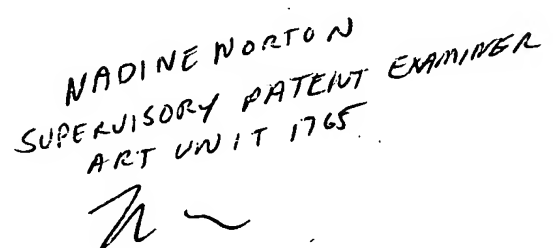 NADINE NORTON
SUPERVISORY PATENT EXAMINER
ART UNIT 1765